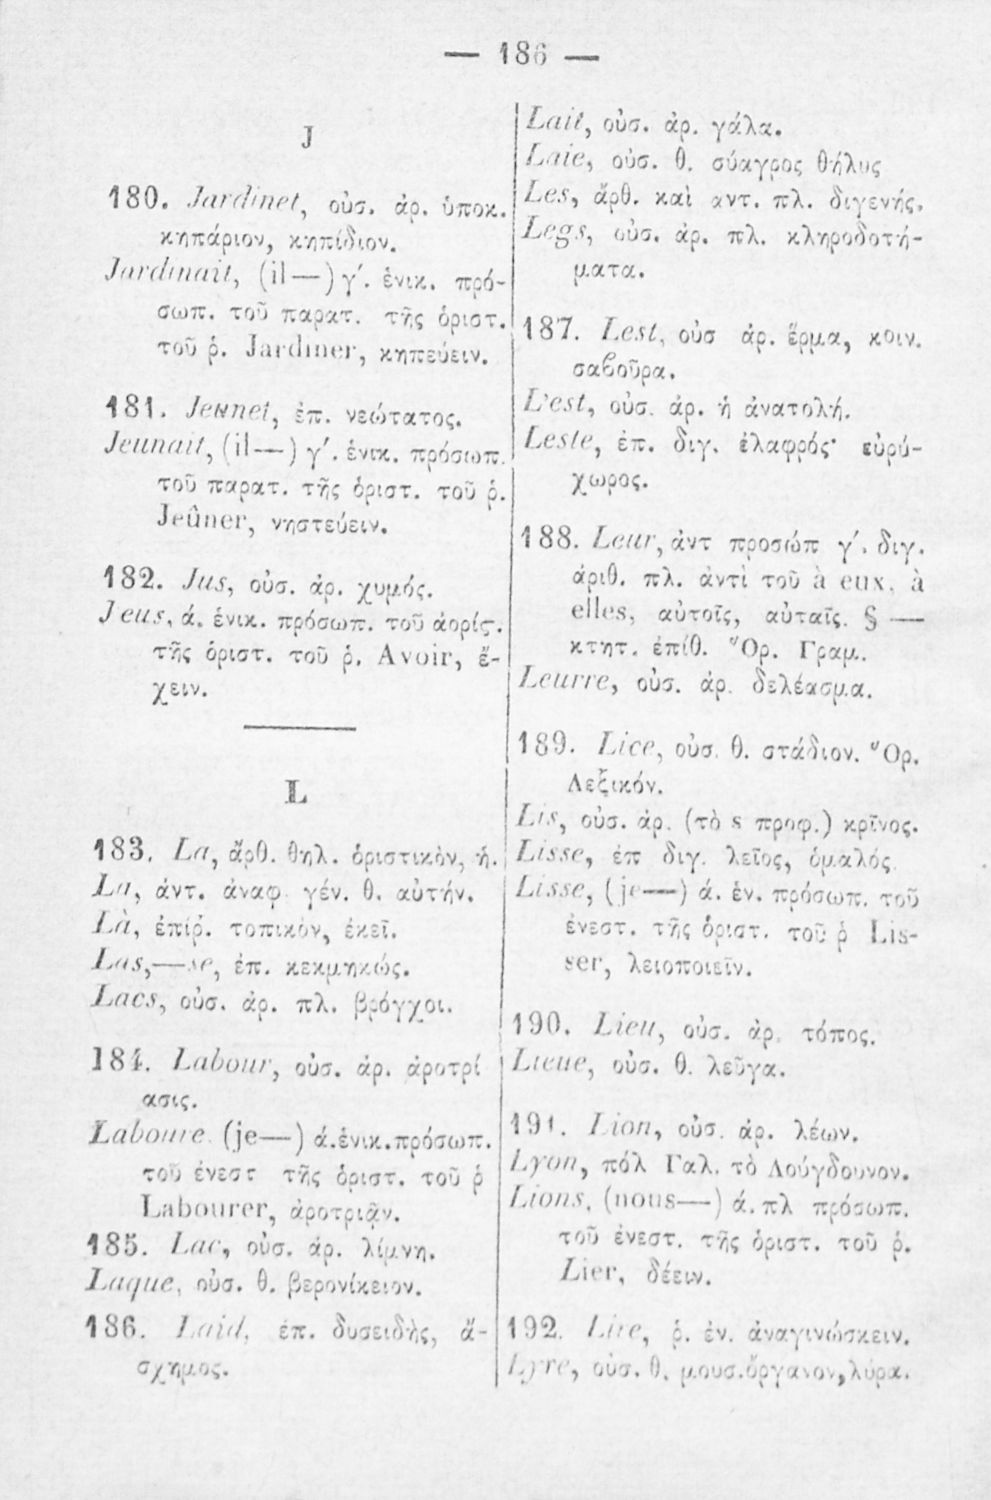 — 186 —
J
180. Jardinet, οὐσ. ἀρ. ὑποκ.
κηπάριον, κηπίδιον.
Jardinait, (il—) γ΄. ἑνικ. πρό-
σωπ. τοῦ παρατ. τῆς ὁριστ.
τοῦ ῥ. Jardiner, κηπεύειν.
181. Jeunet, ἐπ. νεώτατος.
Jeunait, (il—) γ΄. ἑνικ. πρόσωπ.
τοῦ παρατ. τῆς ὁριστ. τοῦ ῥ.
Jeûner, νηστεύειν.
182. Jus, οὐσ. ἀρ. χυμός.
Jeus, ά. ἑνικ. πρόσωπ. τοῦ ἀορίϛ.
τῆς ὁριστ. τοῦ ῥ. Avoir, ἔ-
χειν.
L
183. La, ἄρθ. θηλ. ὁριστικὸν, ἡ.
La, ἀντ. ἀναφ. γέν. θ. αὐτήν.
Là, ἐπίῤ. τοπικὸν, ἐκεῖ.
Las,—se, ἐπ. κεκμηκώς.
Lacs, οὐσ. ἀρ. πλ. βρόγχοι.
184. Labour, οὐσ. ἀρ. ἀροτρί
ασις.
Laboure. (je—) ά.ἑνικ.πρόσωπ.
τοῦ ἐνεστ τῆς ὁριστ. τοῦ ῥ
Labourer, ἀροτριᾷν.
185. Lac, οὐσ. ἀρ. λίμνη.
Laque, οὐσ. θ. βερονίκειον.
186. Laid, ἐπ. δυσειδὴς, ἄ-
σχημος.
Lait, οὐσ. ἀρ. γάλα.
Laie, οὐσ. θ. σύαγρος θήλυς
Les, ἄρθ. καὶ αντ. πλ. διγενής.
Legs, οὐσ. ἀρ. πλ. κληροδοτή-
ματα.
187. Lest, οὐσ ἀρ. ἕρμα, κοιν.
σαβοῦρα.
L'est, οὐσ. ἀρ. ἡ ἀνατολή.
Leste, ἐπ. διγ. ἐλαφρός· εὐρύ-
χωρος.
188. Leur, ἀντ προσώπ γ΄. διγ.
ἀριθ. πλ. ἀντὶ τοῦ à eux, à
elles, αὐτοῖς, αὐταῖς. § —
κτητ. ἐπίθ. Ὅρ. Γραμ.
Leurre, οὐσ. ἀρ. δελέασμα.
189. Lice, οὐσ. θ. στάδιον. Ὅρ.
Λεξικόν.
Lis, οὐσ. ἀρ. (τὸ s προφ.) κρῖνος.
Lisse, ἐπ διγ. λεῖος, ὁμαλός.
Lisse, (je—) ά. ἑν. πρόσωπ. τοῦ
ἐνεστ. τῆς ὁριστ. τοῦ ῥ Lis-
ser, λειοποιεῖν.
190. Lieu, οὐσ. ἀρ. τόπος.
Lieue, οὐσ. θ. λεῦγα.
191. Lion, οὐσ. ἀρ. λέων.
Lyon, πόλ Γαλ. τὸ Λούγδουνον.
Lions, (nous—) ά. πλ πρόσωπ.
τοῦ ἐνεστ. τῆς ὁριστ. τοῦ ῥ.
Lier, δέειν.
192. Lire, ῥ. ἐν. ἀναγινώσκειν.
Lyre, οὐσ. θ. μουσ.ὄργανον, λύρα.